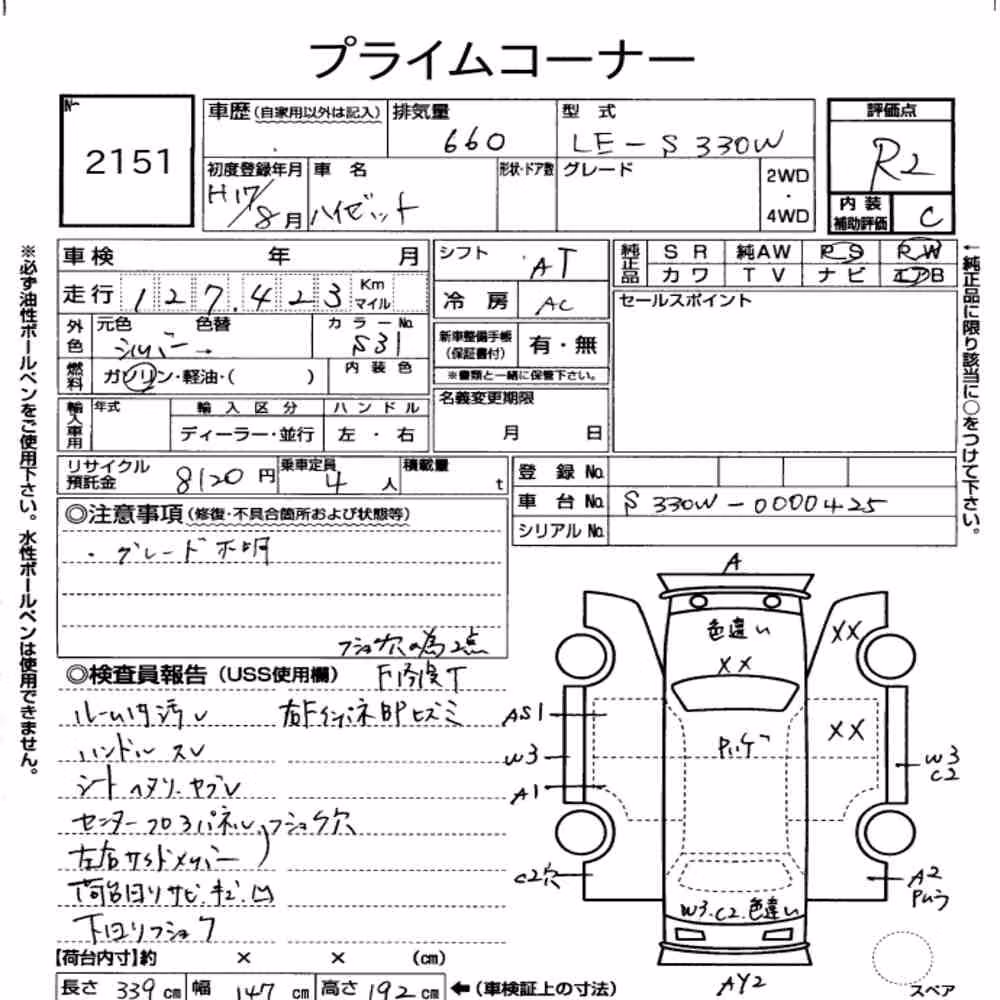 プライムコーナー
No
2151
車歴(自家用以外は記入)
排気量
660
型 式
LE-S330W
評価点
R2
初度登録年月
H17/8月
車 名
ハイゼット
形状・ドア数
グレード
2WD
・
4WD
内 装
補助評価
C
車検 年 月
シフト
AT
純正品
SR 純AW PS PW
カワ TV ナビ エアB
走行 127,423 Km マイル
冷 房
AC
セールスポイント
外色
元色 色替
シルバー →
カラーNo.
S31
新車整備手帳
(保証書付)
有・無
※書類と一緒に保管下さい。
燃料
ガソリン・軽油・( )
内 装 色
輸入車用
年式
輸 入 区 分
ハ ン ド ル
ディーラー・並行
左 ・ 右
名義変更期限
月 日
リサイクル
預託金
8120 円
乗車定員
4 人
積載量
t
登 録 No.
車 台 No. S330W-0000425
シリアル No.
◎注意事項(修復・不具合箇所および状態等)
・グレード不明
フショク穴の為2点
◎検査員報告(USS使用欄)
F修復T
ルーム内汚レ
右FインパネBPヒズミ
ハンドルスレ
シートヘタリ、ヤブレ
センターフロアパネル フショク穴
左右サイドメンバー
荷台回りサビ、キズ、凹
下回リフショク
【荷台内寸】約 × × (cm)
長さ 339 cm 幅 147 cm 高さ 192 cm
←(車検証上の寸法)
※必ず油性ボールペンをご使用下さい。水性ボールペンは使用できません。
←純正品に限り該当に○をつけて下さい。
A
色違い
XX
XX
AS1
W3
A1
XX
W3
C2
C2穴
A2
W3.C2.色違い
AY2
スペア